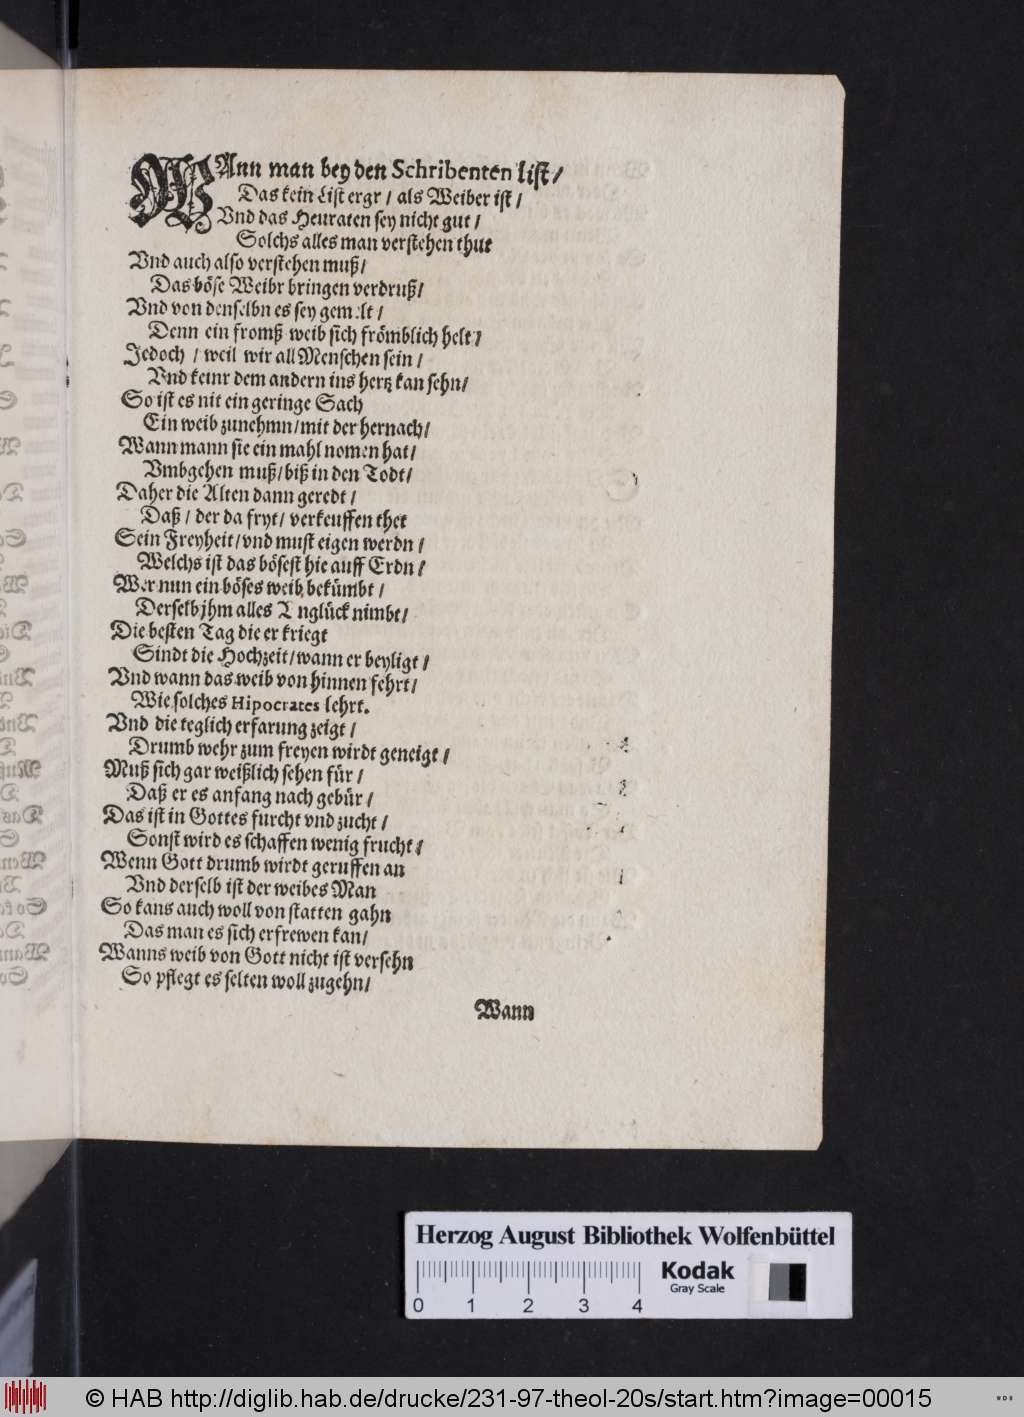 WAnn man bey den Schribenten list /
Das kein List ergr / als Weiber ist /
Vnd das Heuraten sey nicht gut /
Solchs alles man verstehen thut
Vnd auch also verstehen muß /
Das böse Weibr bringen verdruß /
Vnd von denselbn es sey gemelt /
Denn ein fromß weib sich frömblich helt /
Jedoch / weil wir all Menschen sein /
Vnd keinr dem andern ins hertz kan sehn /
So ist es nit ein geringe Sach
Ein weib zunehmn / mit der hernach /
Wann mann sie ein mahl nomen hat /
Vmbgehen muß / biß in den Todt /
Daher die Alten dann geredt /
Daß / der da fryt / verkeuffen thet
Sein Freyheit / vnd must eigen werdn /
Welchs ist das bösest hie auff Erdn /
Wer nun ein böses weib bekümbt /
Derselb jhm alles Vnglück nimbt /
Die besten Tag die er kriegt
Sindt die Hochzeit / wann er beyligt /
Vnd wann das weib von hinnen fehrt /
Wie solches Hipocrates lehrt.
Vnd die teglich erfarung zeigt /
Drumb wehr zum freyen wirdt geneigt /
Muß sich gar weißlich sehen für /
Daß er es anfang nach gebür /
Das ist in Gottes furcht vnd zucht /
Sonst wird es schaffen wenig frucht /
Wenn Gott drumb wirdt geruffen an
Vnd derselb ist der weibes Man
So kans auch woll von statten gahn
Das man es sich erfrewen kan /
Wanns weib von Gott nicht ist versehn
So pflegt es selten woll zugehn /
Wann
Herzog August Bibliothek Wolfenbüttel
Kodak
Gray Scale
0 1 2 3 4
© HAB http://diglib.hab.de/drucke/231-97-theol-20s/start.htm?image=00015